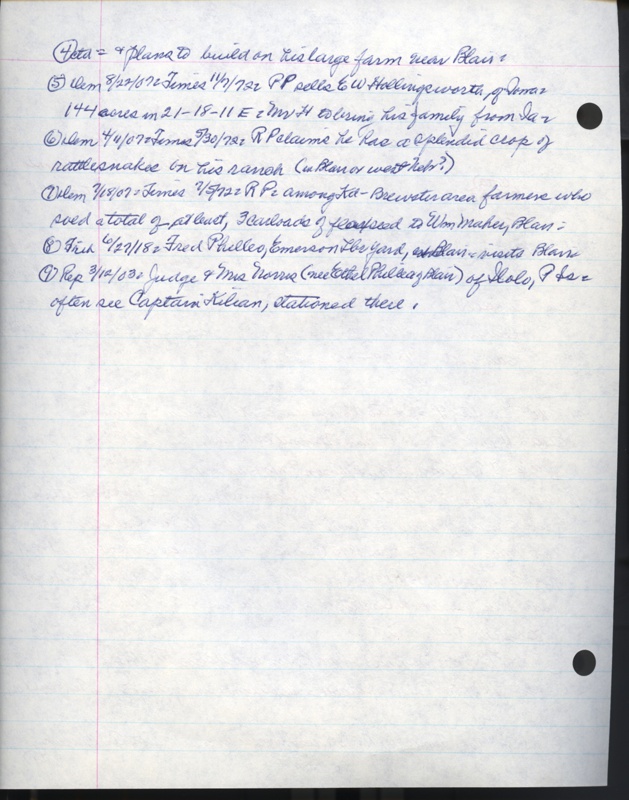 ④ctd = & plans to build on his large farm near Blair =
⑤ Dem 8/22/07 = Times 11/7/72 = P P sells E W Hollingsworth of Iowa =
144 acres in 21-18-11 E = Mr H to bring his family from Ia =
⑥ Dem 4/11/07 = Times 3/30/72 = R P claims he has a splendid crop of
rattlesnakes on his ranch (in Blair or west Nebr?)
⑦ Dem = Times = R P = among Brewster area farmers who
sold a total of, at least, 3 carloads of flaxseed to Wm Maher, Blair =
⑧ 6/27/18 = Fred Philleo, Emerson Lbr yard, ex Blair = visits Blair
⑨ Rep 3/12/03 = Judge & Mrs Norris (nee Ethel Philleo, Blair) of Iloilo, P Is =
often see Captain Kilian, stationed there.